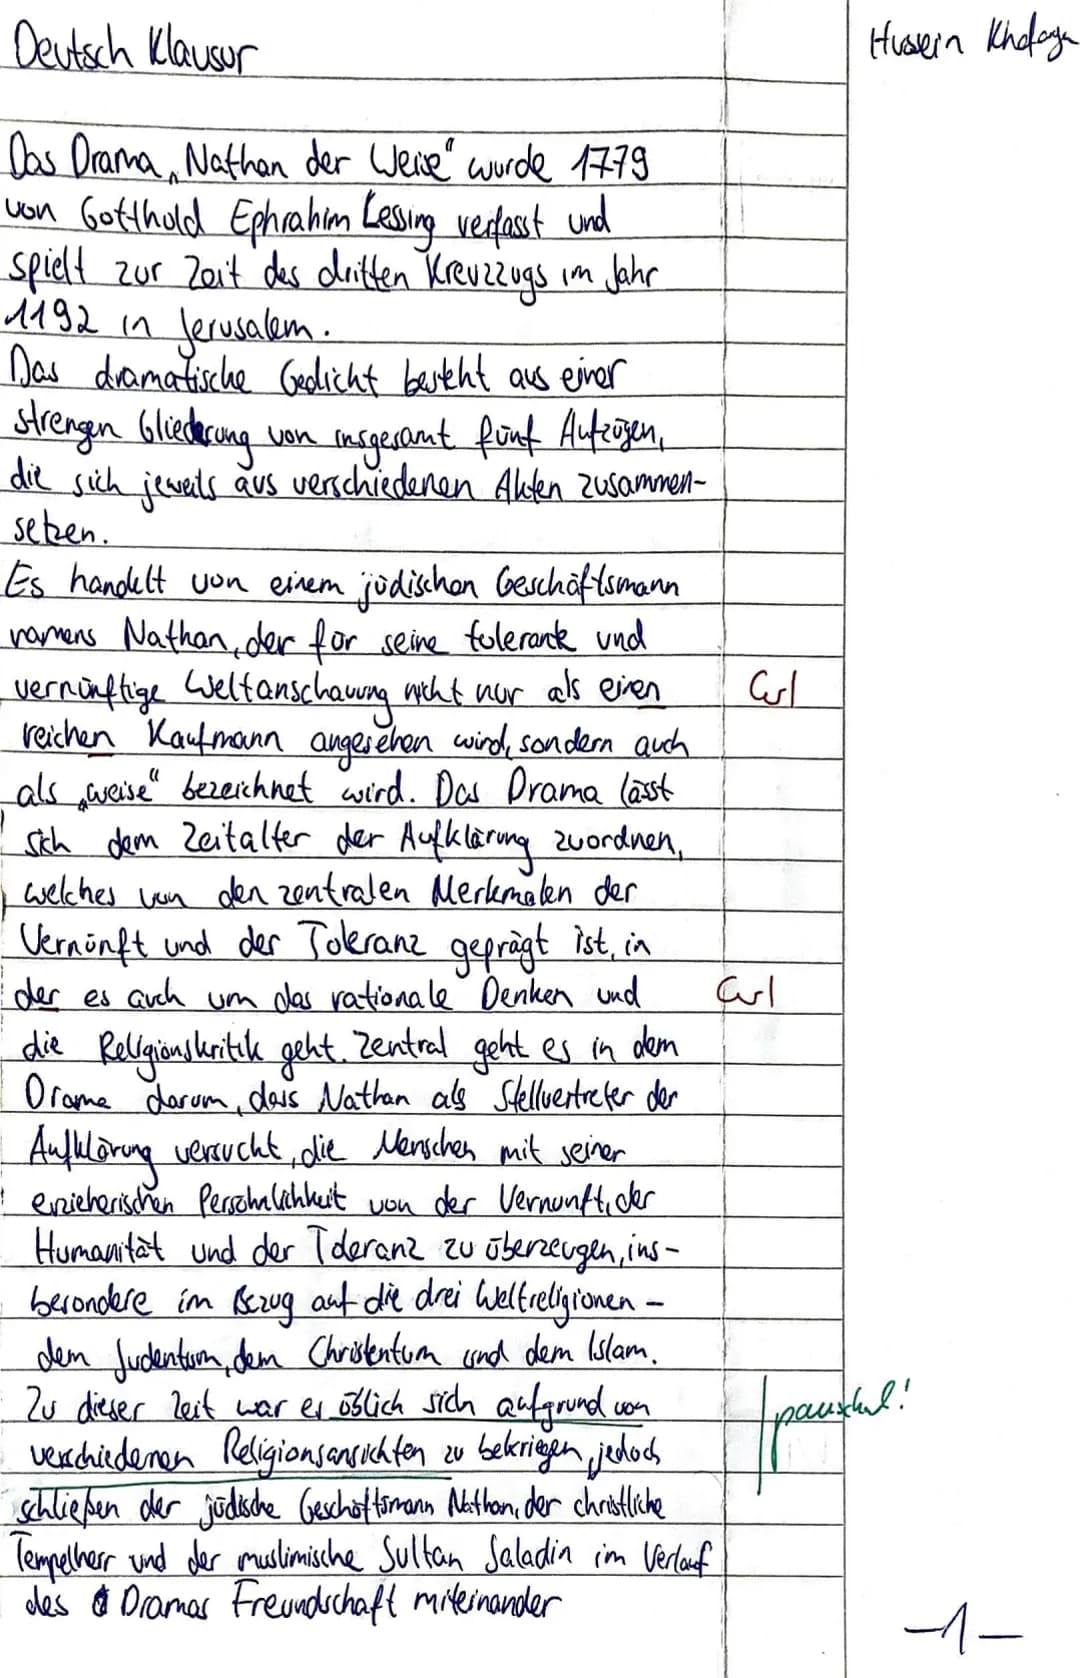 Deutsch Klausur
Hussein
Das Drama „Nathan der Weise" wurde 1779
von Gotthold Ephrahim Lessing verfasst und
spielt zur Zeit des dritten Kreuzzugs im Jahr
1192 in Jerusalem.
Das dramatische Gedicht besteht aus einer
strengen Gliederung von insgesamt fünf Aufzügen,
die sich jeweils aus verschiedenen Akten zusammen-
setzen.
Es handelt von einem jüdischen Geschäftsmann
namens Nathan, der für seine tolerante und
vernünftige Weltanschauung nicht nur als einen
reichen Kaufmann angesehen wird, sondern auch
als „weise" bezeichnet wird. Das Drama lässt
sich dem Zeitalter der Aufklärung zuordnen,
welches von den zentralen Merkmalen der
Vernunft und der Toleranz geprägt ist, in
der es auch um das rationale Denken und
die Religionskritik geht. Zentral geht es in dem
Drama darum, dass Nathan als Stellvertreter der
Aufklärung versucht, die Menschen mit seiner
erzieherischen Persöhnlichkeit von der Vernunft, der
Humanität und der Toleranz zu überzeugen, ins-
besondere im Bezug auf die drei Weltreligionen -
dem Judentum, dem Christentum und dem Islam.
Zu dieser Zeit war es üblich sich aufgrund von
pauschal!
verschiedenen Religionsansichten zu bekriegen, jedoch
schließen der jüdische Geschäftsmann Nathan, der christliche
Tempelherr und der muslimische Sultan Saladin im Verlauf
des Dramas Freundschaft miteinander
-1-